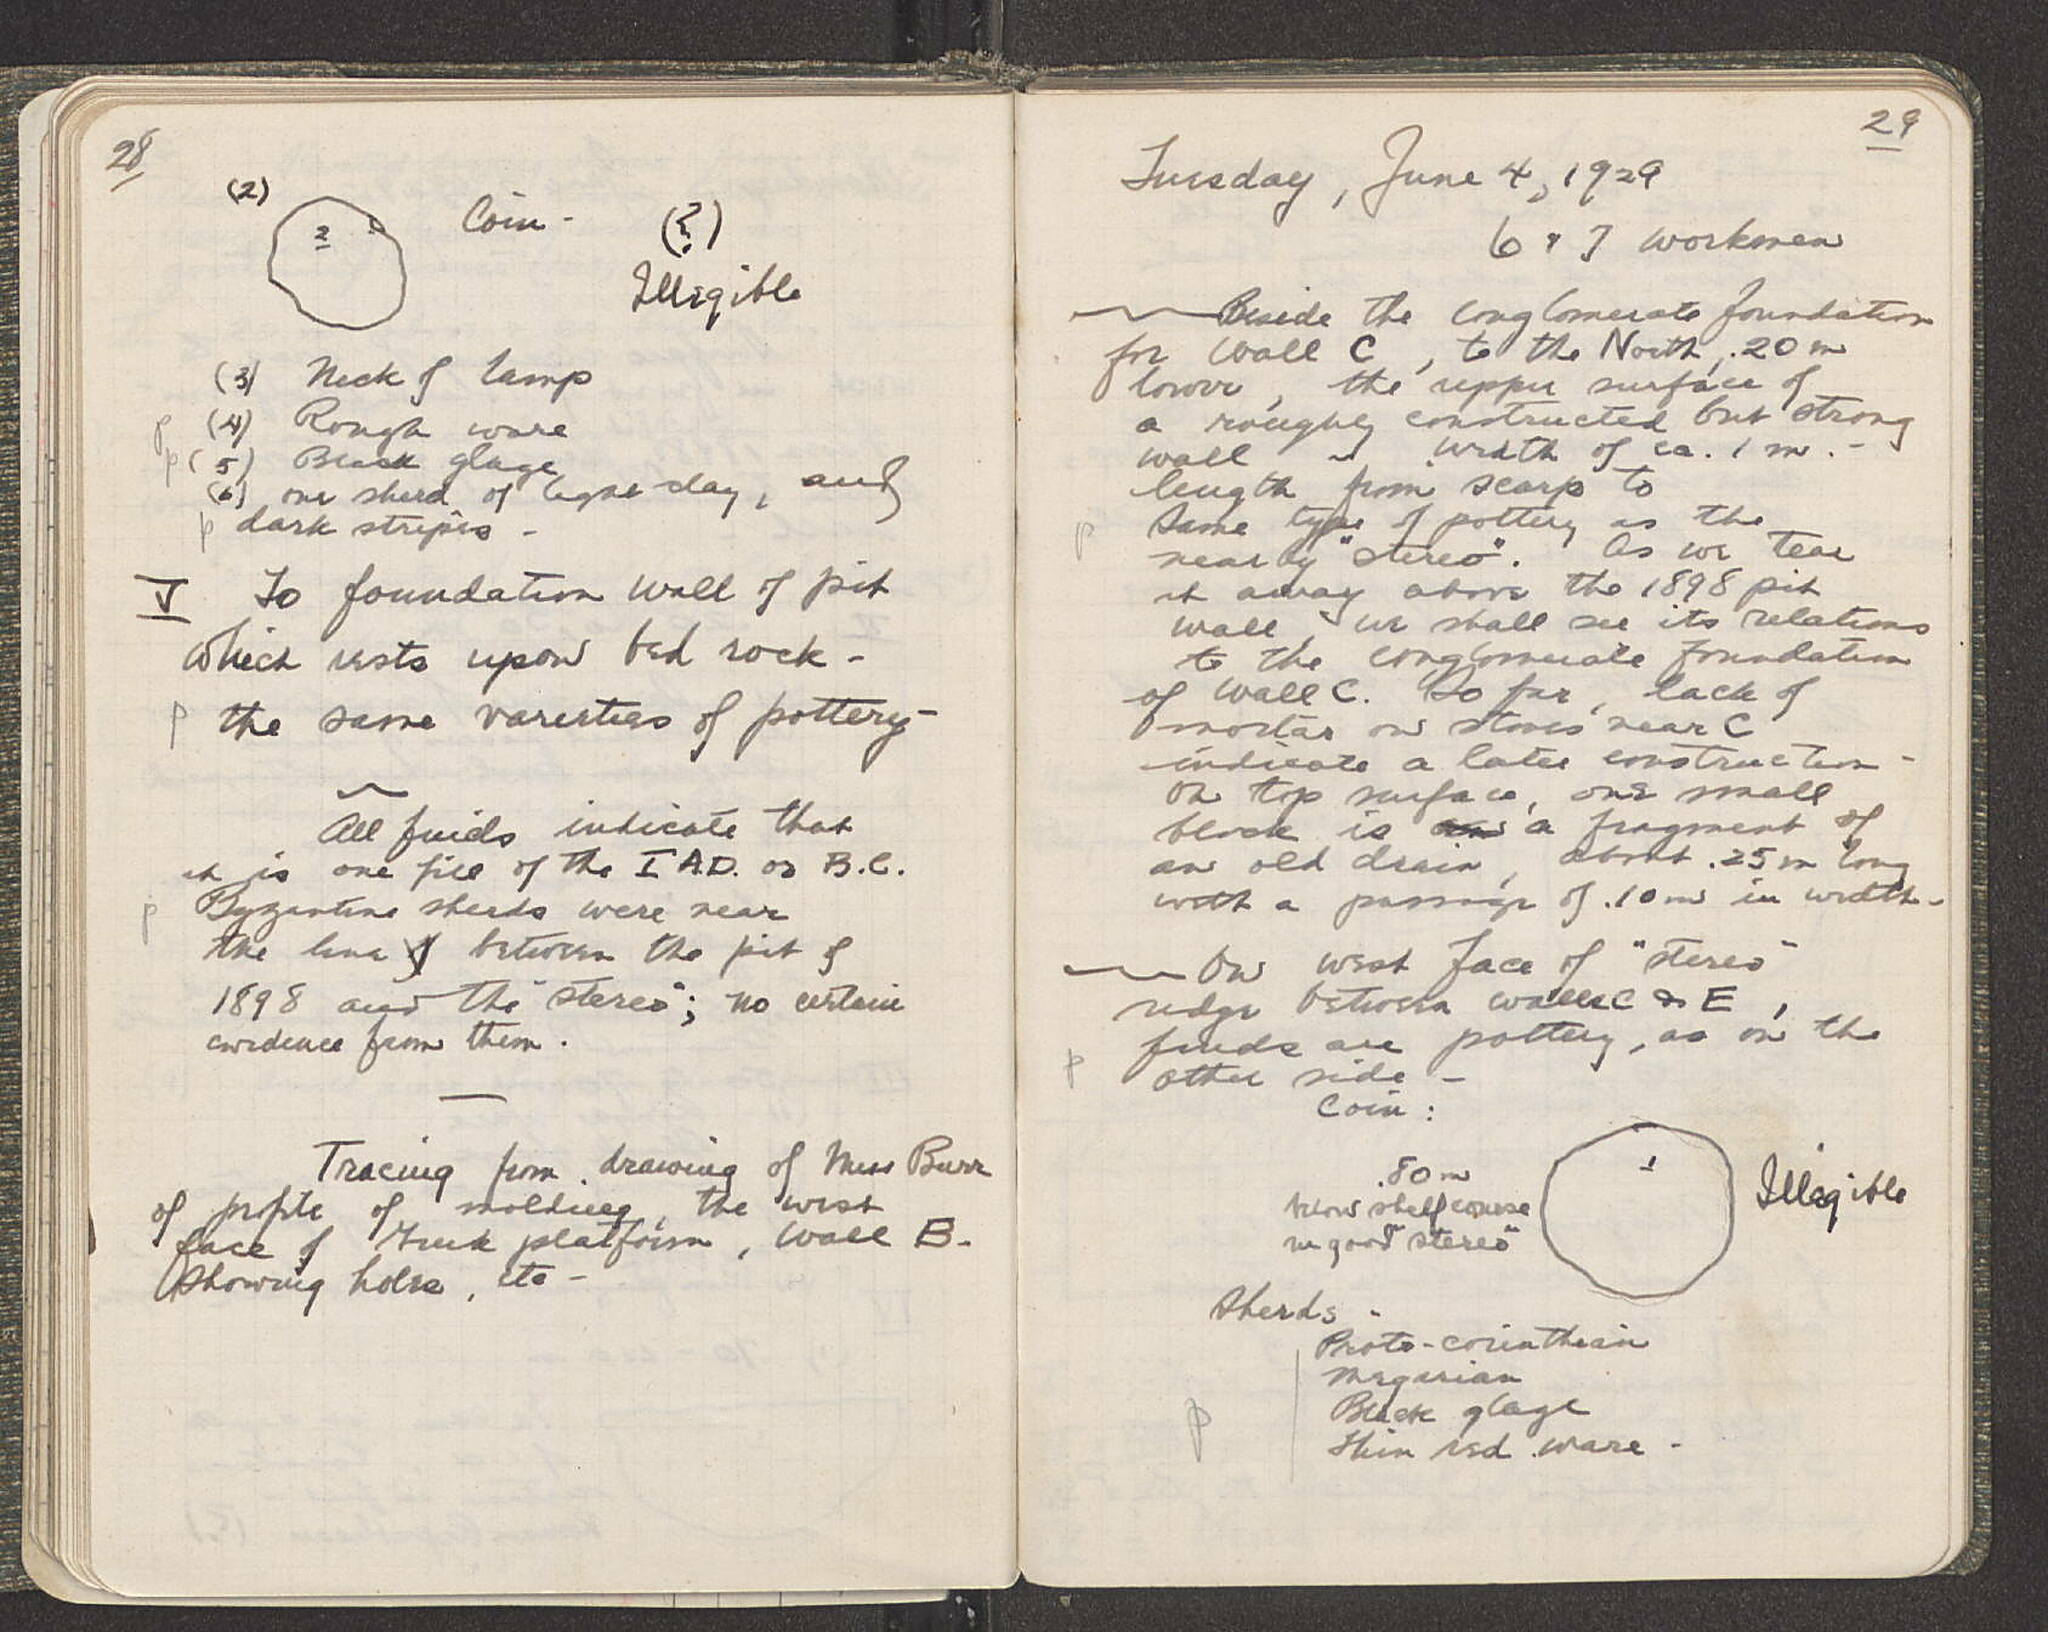 28
(2)
2
Coin -
(?)
Illegible
(3) Neck of lamp
p (4) Rough ware
p (5) Black glaze
(6) one sherd of light clay, and
p dark stripes -
V To foundation wall of pit
which rests upon bed rock -
p the same varieties of pottery -
All finds indicate that
it is one fill of the I A.D. or B.C.
p Byzantine sherds were near
the line between the pit of
1898 and the "stereo"; no certain
evidence from them.
Tracing from drawing of Miss Burr
of profile of molding, the west
face of Greek platform, Wall E-
showing holes, etc -
29
Tuesday, June 4, 1929
6 & 7 workmen
Beside the conglomerate foundation
for Wall C, to the North, .20 m
lower, the upper surface of
a roughly constructed but strong
wall width of ca. 1 m. -
length from scarp to
p Same type of pottery as the
nearby "stereo". As we tear
it away above the 1898 pit
wall, we shall see its relations
to the conglomerate foundation
of Wall C. So far, lack of
mortar on stones near C
indicate a later construction -
On top surface, one small
block is a fragment of
an old drain, about .25 m long
with a passage of .10 m in width -
On west face of "stereo"
ridge between walls C & E,
finds are pottery, as on the
p other side -
Coin:
.80 m
below shelf course
in good "stereo"
1
Illegible
Sherds -
Proto-corinthian
Megarian
p Black glaze
thin red ware -